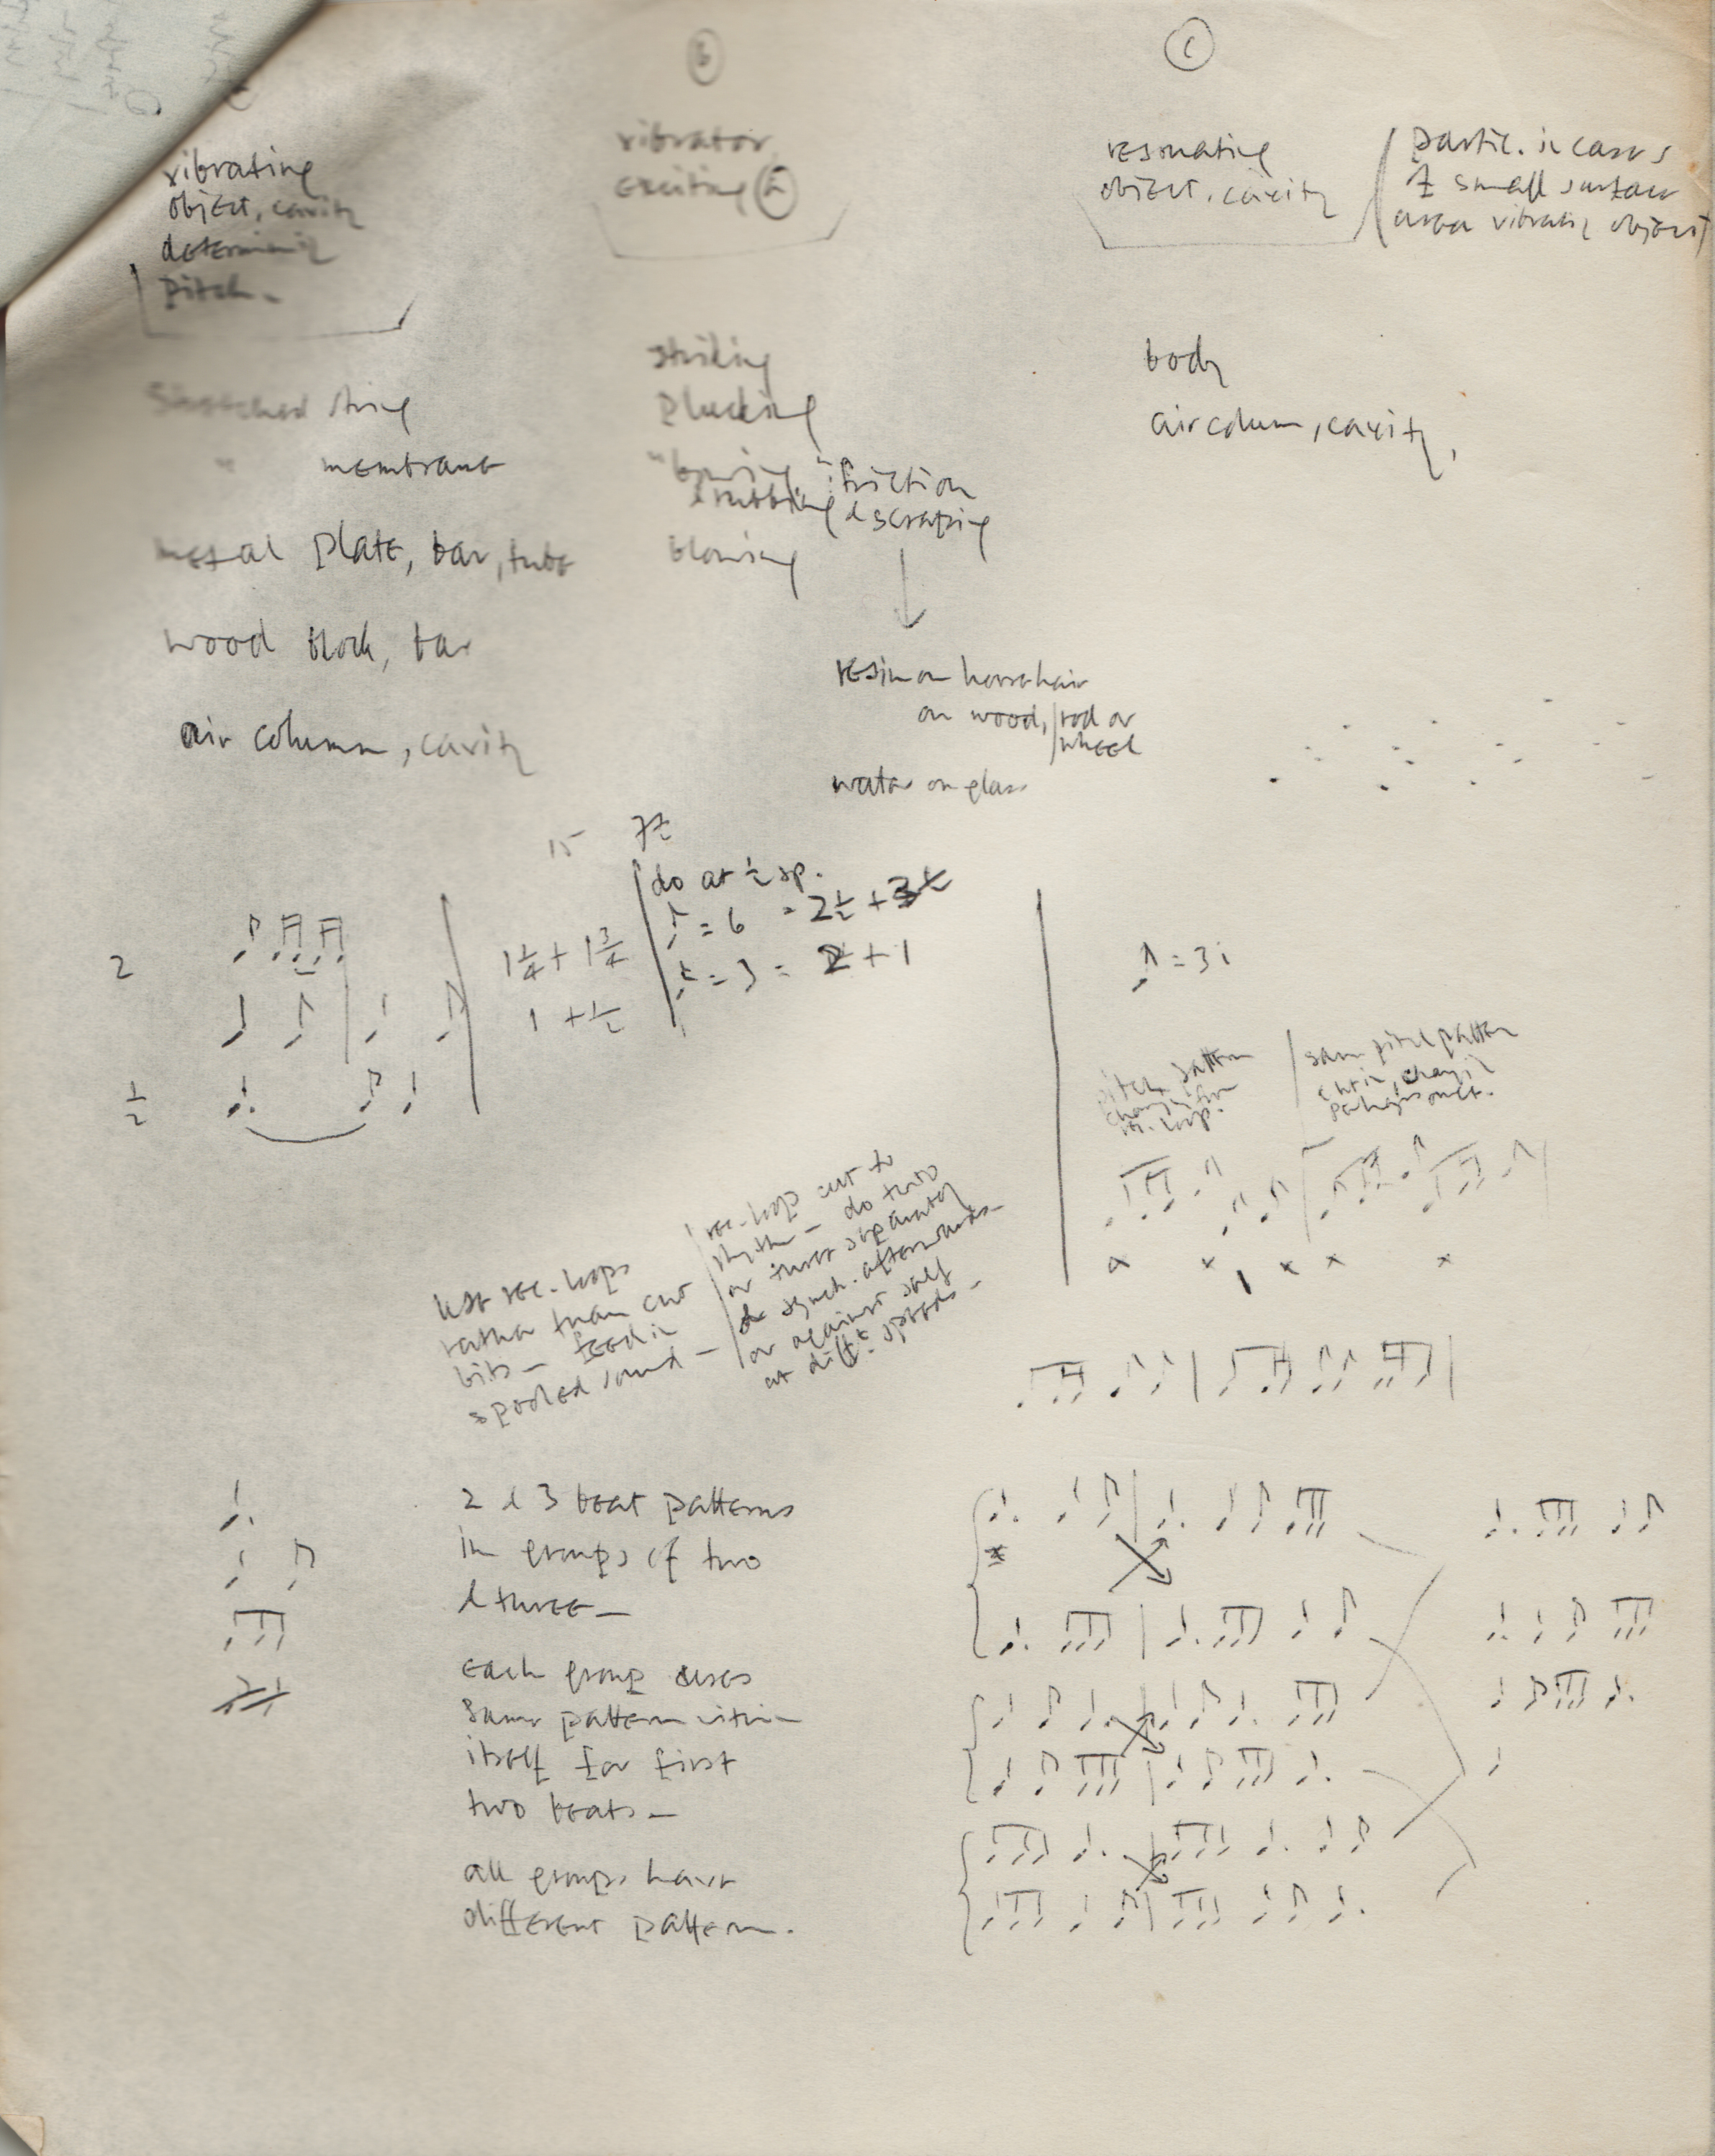 B
C
vibrating
object, cavity
determining
pitch.
vibrator
exciting A
resonating
object, cavity
partic. in cases
of small surface
area vibratig object
striking
plucking
"bowing"
& rubbing
friction
& scraping
blowing
body
air column, cavity,
stretched string
" membrane
metal plate, bar, tube
wood block, bar
air column, cavity
resin on horsehair
on wood, rod or
wheel
water on glass
15 7½
do at ½ sp.
= 6 = 2½ + 3½
= 3 = 2 + 1
2
1¼ + 1¾
1 + ½
½
= 3i
pitch pattern
same pitch pattern
use rec. loops
rather than cut
bits - feed in
spooled sound -
rec. loops cut to
rhythm - do two
or three separately
& synch. afterwards -
or against self
at difft. speeds -
2 & 3 beat patterns
in groups of two
& three -
each group uses
same pattern within
itself for first
two beats -
all groups have
different pattern.